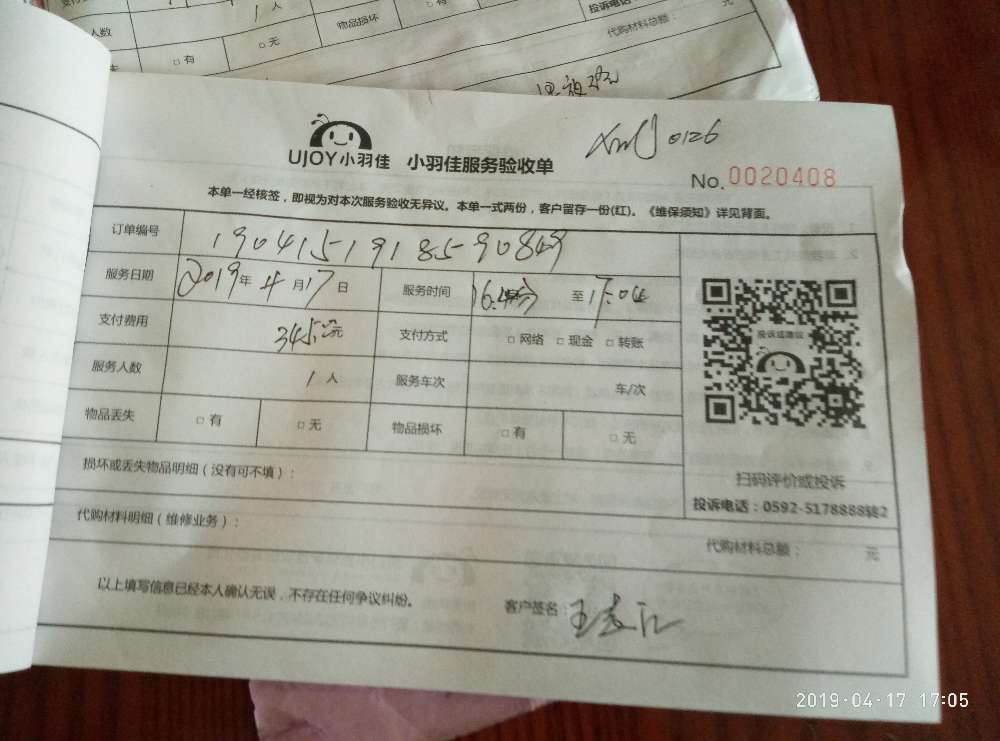 人数
1人
物品损坏
□有
投诉电话
代购材料总额：
元
□有
□无
UJOY小羽佳 小羽佳服务验收单
0126
No.0020408
本单一经核签，即视为对本次服务验收无异议。本单一式两份，客户留存一份(红)。《维保须知》详见背面。
订单编号
服务日期 2019年4月17日 服务时间 至
支付费用 345元 支付方式 □网络 □现金 □转账
服务人数 1人 服务车次 车/次
物品丢失 □有 □无 物品损坏 □有 □无
投诉或建议
扫码评价或投诉
投诉电话：0592-5178888转2
损坏或丢失物品明细（没有可不填）：
代购材料明细（维修业务）：
代购材料总额： 元
以上填写信息已经本人确认无误，不存在任何争议纠纷。
客户签名：
2019-04-17 17:05